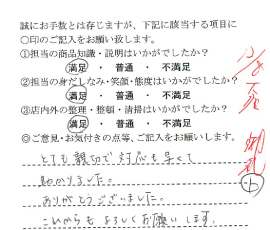 誠にお手数とは存じますが、下記に該当する項目に
〇印のご記入をお願い致します。
①担当の商品知識・説明はいかがでしたか?
満足 ・ 普通 ・ 不満足
②担当の身だしなみ・笑顔・態度はいかがでしたか?
満足 ・ 普通 ・ 不満足
③店内外の整理・整頓・清掃はいかがでしたか?
満足 ・ 普通 ・ 不満足
◎ご意見・お気付きの点等、ご記入をお願いします。
とても親切で対応も早くて
助かりました。
ありがとうございました。
これからもよろしくお願いします。